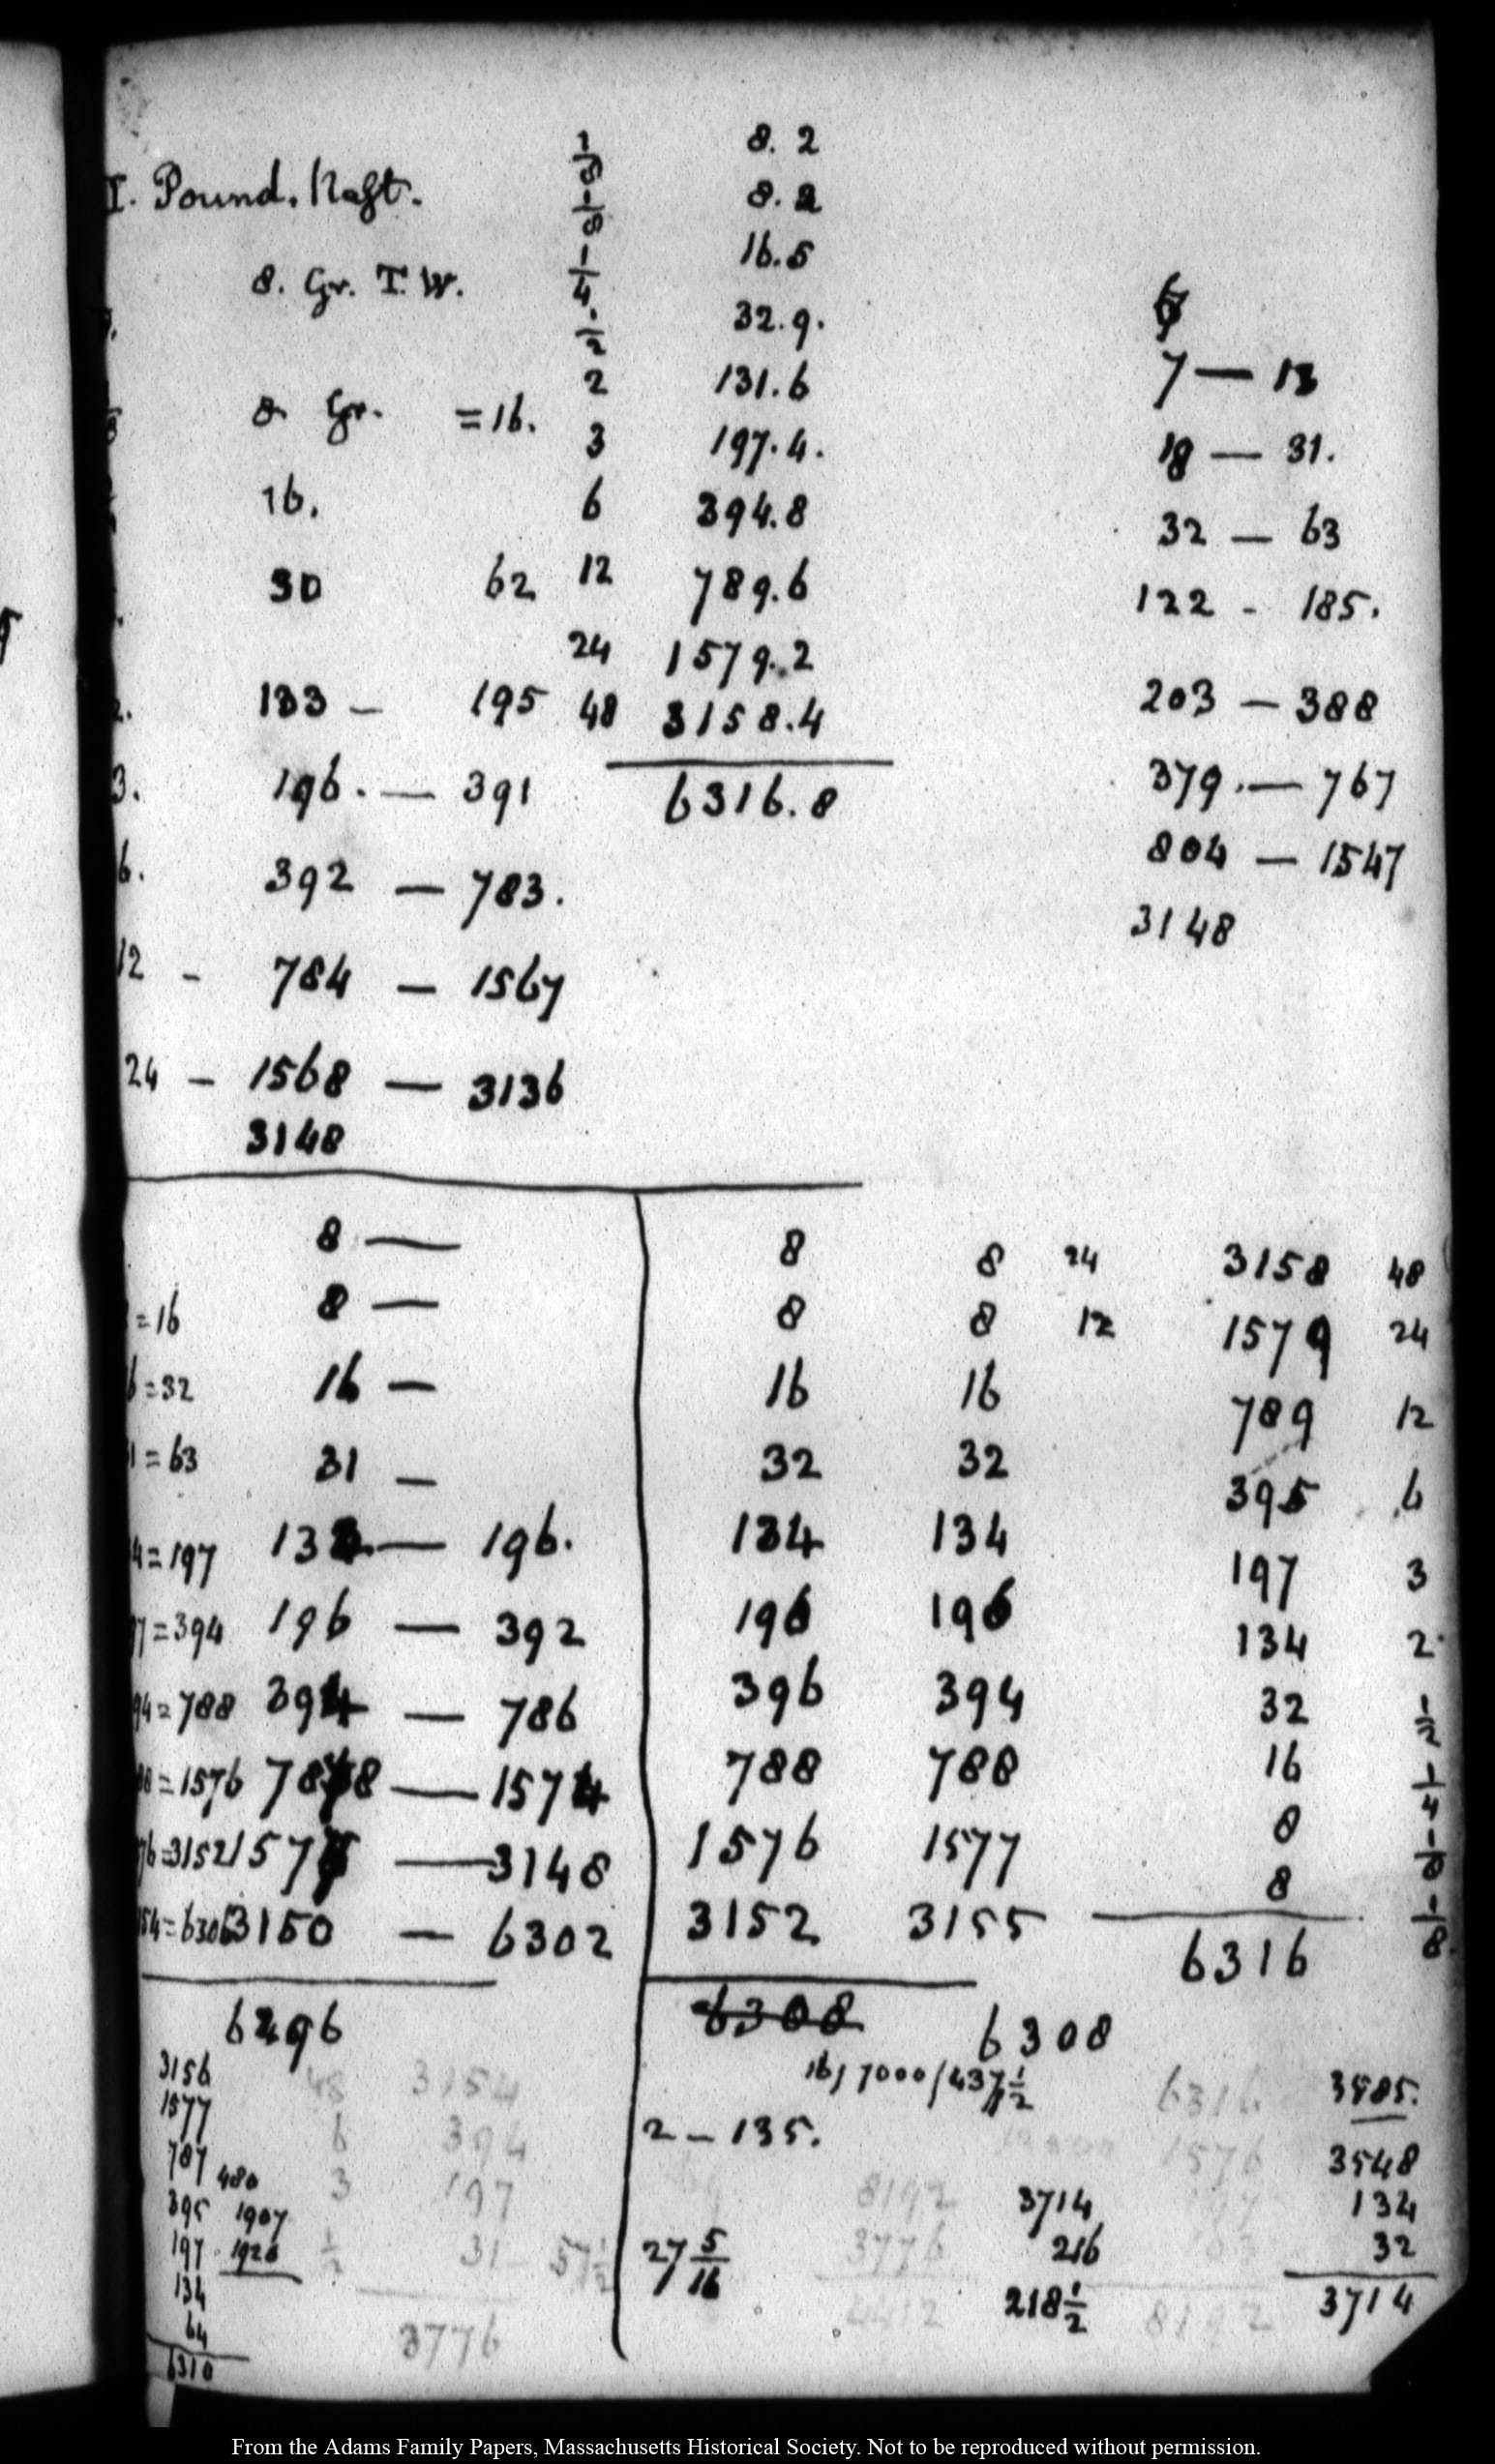 I. Pound. Nagt.
8. Gr. T. W.
8 Gr. =16.
16.
30 62
2. 133 — 195
3. 196. — 391
6. 392 — 783.
12 - 784 — 1567
24 - 1568 — 3136
3148
1/8 8. 2
1/8 8. 2
1/4 16.5
1/2 32.9.
2 131.6
3 197.4.
6 394.8
12 789.6
24 1579.2
48 3158.4
6316.8
7 — 13
18 — 31.
32 — 63
122 - 185.
203 — 388
379. — 767
804 — 1547
3148
8 —
=16 8 —
6=32 16 —
1=63 31 —
4=197 — 196.
97=394 196 — 392
94=788 394 — 786
88=1576 — 1574
76=3152 — 3148
154=6306 3150 — 6302
6296
3156
1577
787
395
197
134
64
6310
480
1907
1926
48 3154
6 394
3 197
1/2 31 57 1/2
3776
8 8 24
8 8 12
16 16
32 32
134 134
196 196
396 394
788 788
1576 1577
3152 3155
6308 6308
16/7000/437 1/2
2 — 135.
27 5/16
8192
3776
4412
3714
216
218 1/2
3158 48
1579 24
789 12
395 6
197 3
134 2
32 1/2
16 1/4
8 1/8
8 1/8
6316
6316
1576
8192
3585.
3548
134
32
3714
From the Adams Family Papers, Massachusetts Historical Society. Not to be reproduced without permission.